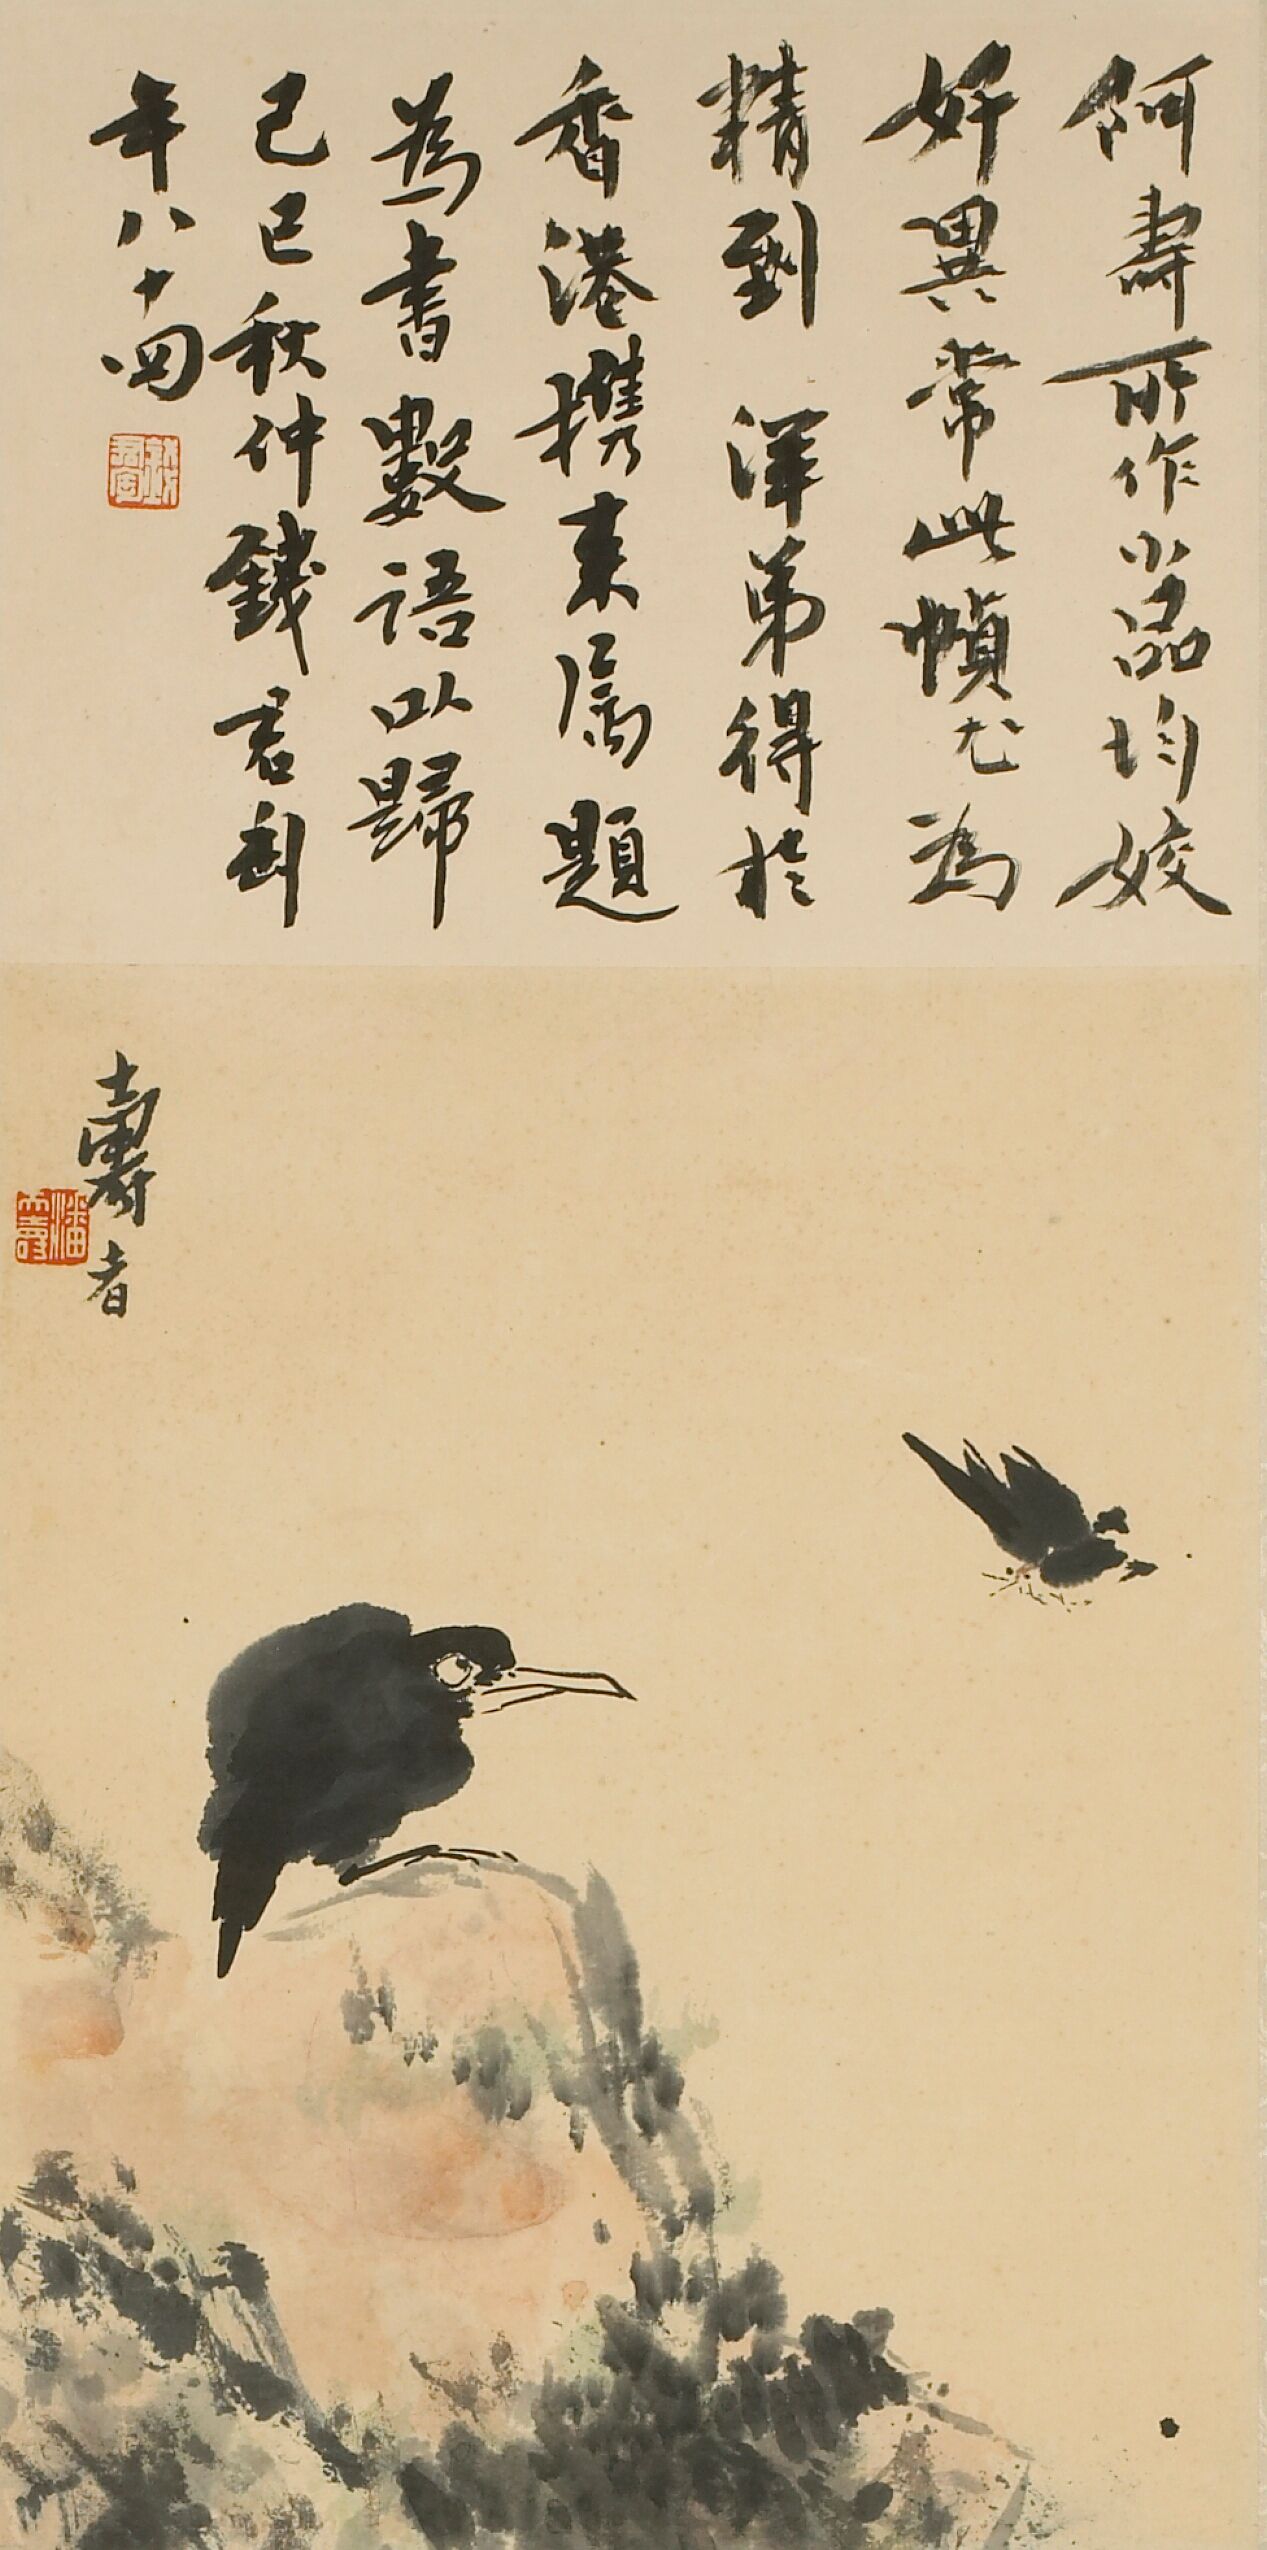 阿壽所作小品均姣
好異常此幀尤為
精到 澤弟得於
香港携来属題
為書數語以歸
己巳秋仲錢君匋
年八十四
錢君匋
壽者
潘天壽